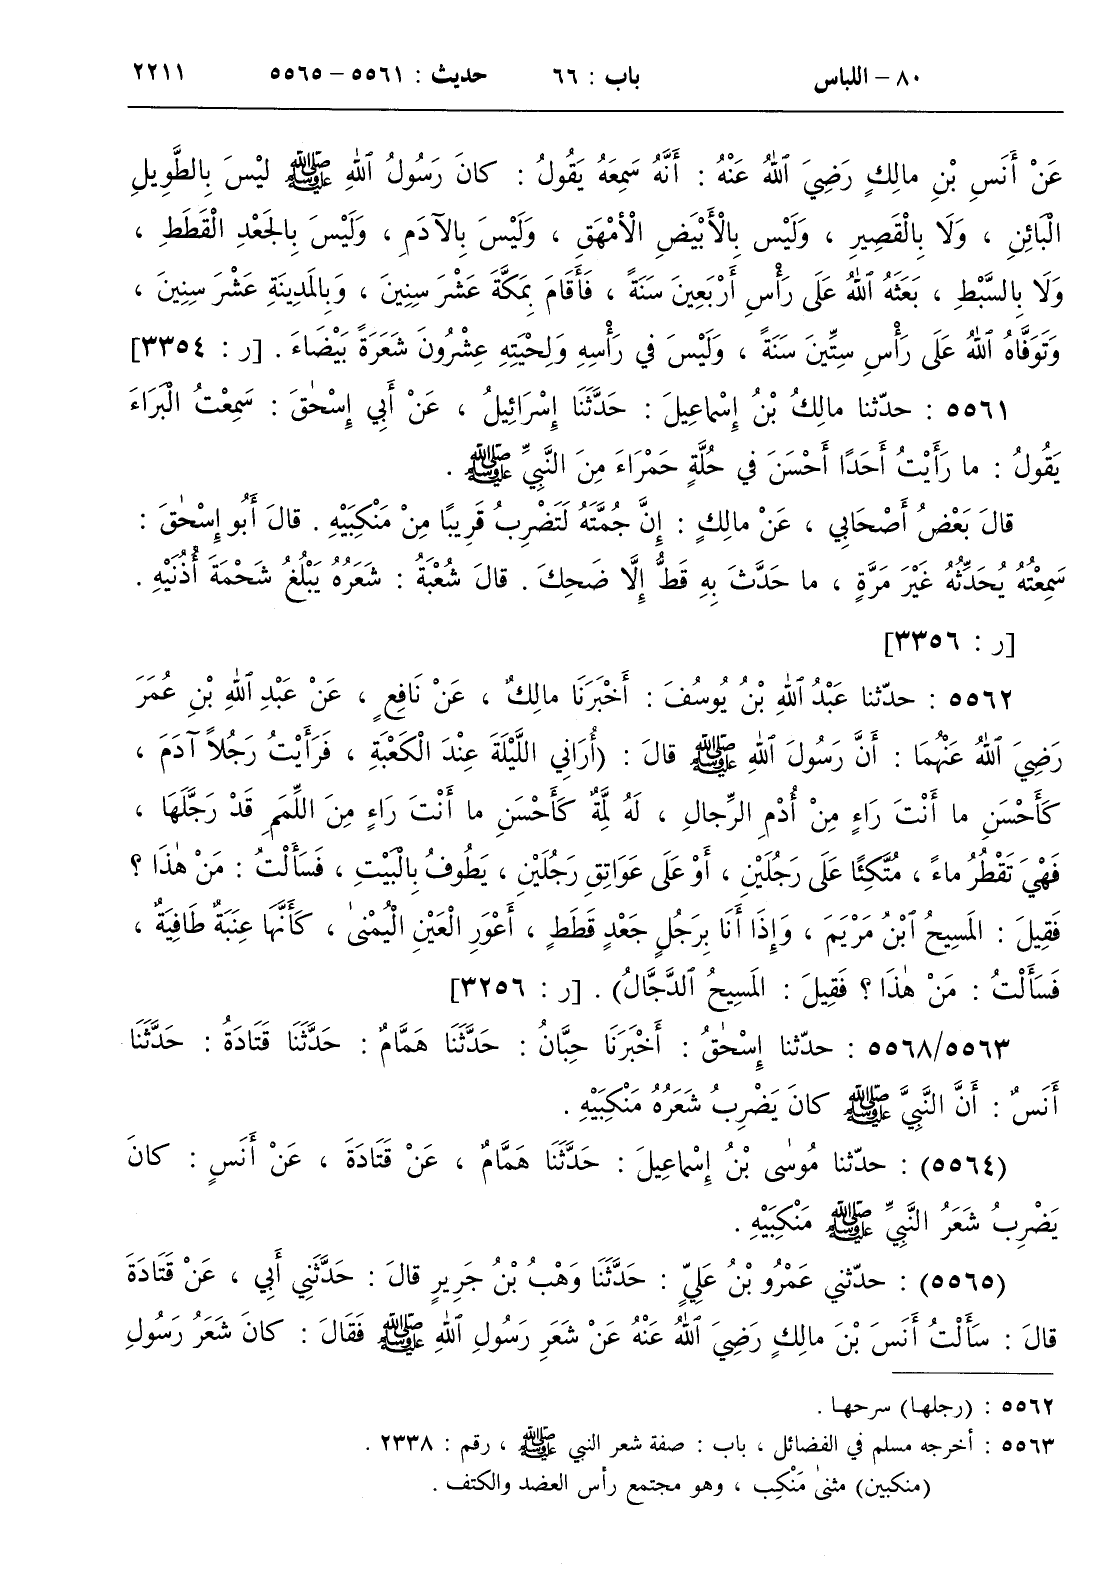 ٨٠ – اللباس باب : ٦٦ حديث : ٥٥٦١ – ٥٥٦٥ ٢٢١١
عَنْ أَنَسِ بْنِ مالِكٍ رَضِيَ ٱللهُ عَنْهُ : أَنَّهُ سَمِعَهُ يَقُولُ : كانَ رَسُولُ ٱللهِ ﷺ لَيْسَ بِالطَّوِيلِ
الْبَائِنِ ، وَلَا بِالْقَصِيرِ ، وَلَيْسَ بِالْأَبْيَضِ الْأَمْهَقِ ، وَلَيْسَ بِالآدَمِ ، وَلَيْسَ بِالجَعْدِ الْقَطَطِ ،
وَلَا بِالسَّبْطِ ، بَعَثَهُ ٱللهُ عَلَى رَأْسِ أَرْبَعِينَ سَنَةً ، فَأَقَامَ بِمَكَّةَ عَشْرَ سِنِينَ ، وَبِالمَدِينَةِ عَشْرَ سِنِينَ ،
وَتَوَفَّاهُ ٱللهُ عَلَى رَأْسِ سِتِّينَ سَنَةً ، وَلَيْسَ في رَأْسِهِ وَلِحْيَتِهِ عِشْرُونَ شَعَرَةً بَيْضَاءَ . [ر : ٣٣٥٤]
٥٥٦١ : حدّثنا مالِكُ بْنُ إِسْماعِيلَ : حَدَّثَنَا إِسْرَائِيلُ ، عَنْ أَبِي إِسْحٰقَ : سَمِعْتُ الْبَرَاءَ
يَقُولُ : ما رَأَيْتُ أَحَدًا أَحْسَنَ في حُلَّةٍ حَمْرَاءَ مِنَ النَّبِيِّ ﷺ .
قالَ بَعْضُ أَصْحَابِي ، عَنْ مالِكٍ : إِنَّ جُمَّتَهُ لَتَضْرِبُ قَرِيبًا مِنْ مَنْكِبَيْهِ . قالَ أَبُو إِسْحٰقَ :
سَمِعْتُهُ يُحَدِّثُهُ غَيْرَ مَرَّةٍ ، ما حَدَّثَ بِهِ قَطُّ إِلَّا ضَحِكَ . قالَ شُعْبَةُ : شَعَرُهُ يَبْلُغُ شَحْمَةَ أُذُنَيْهِ .
[ر : ٣٣٥٦]
٥٥٦٢ : حدّثنا عَبْدُ ٱللهِ بْنُ يُوسُفَ : أَخْبَرَنَا مالِكٌ ، عَنْ نَافِعٍ ، عَنْ عَبْدِ ٱللهِ بْنِ عُمَرَ
رَضِيَ ٱللهُ عَنْهُمَا : أَنَّ رَسُولَ ٱللهِ ﷺ قالَ : (أُرَانِي اللَّيْلَةَ عِنْدَ الْكَعْبَةِ ، فَرَأَيْتُ رَجُلاً آدَمَ ،
كَأَحْسَنِ ما أَنْتَ رَاءٍ مِنْ أُدْمِ الرِّجالِ ، لَهُ لِمَّةٌ كَأَحْسَنِ ما أَنْتَ رَاءٍ مِنَ اللِّمَمِ قَدْ رَجَّلَهَا ،
فَهْيَ تَقْطُرُ ماءً ، مُتَّكِئًا عَلَى رَجُلَيْنِ ، أَوْ عَلَى عَوَاتِقِ رَجُلَيْنِ ، يَطُوفُ بِالْبَيْتِ ، فَسَأَلْتُ : مَنْ هٰذَا ؟
فَقِيلَ : المَسِيحُ ٱبْنُ مَرْيَمَ ، وَإِذَا أَنَا بِرَجُلٍ جَعْدٍ قَطَطٍ ، أَعْوَرِ الْعَيْنِ الْيُمْنىٰ ، كَأَنَّهَا عِنَبَةٌ طَافِيَةٌ ،
فَسَأَلْتُ : مَنْ هٰذَا ؟ فَقِيلَ : المَسِيحُ ٱلدَّجَّالُ) . [ر : ٣٢٥٦]
٥٥٦٨/٥٥٦٣ : حدّثنا إِسْحٰقُ : أَخْبَرَنَا حِبَّانُ : حَدَّثَنَا هَمَّامٌ : حَدَّثَنَا قَتَادَةُ : حَدَّثَنَا
أَنَسٌ : أَنَّ النَّبِيَّ ﷺ كانَ يَضْرِبُ شَعَرُهُ مَنْكِبَيْهِ .
(٥٥٦٤) : حدّثنا مُوسٰى بْنُ إِسْماعِيلَ : حَدَّثَنَا هَمَّامٌ ، عَنْ قَتَادَةَ ، عَنْ أَنَسٍ : كانَ
يَضْرِبُ شَعَرُ النَّبِيِّ ﷺ مَنْكِبَيْهِ .
(٥٥٦٥) : حدّثني عَمْرُو بْنُ عَلِيٍّ : حَدَّثَنَا وَهْبُ بْنُ جَرِيرٍ قالَ : حَدَّثَنِي أَبِي ، عَنْ قَتَادَةَ
قالَ : سَأَلْتُ أَنَسَ بْنَ مالِكٍ رَضِيَ ٱللهُ عَنْهُ عَنْ شَعَرِ رَسُولِ ٱللهِ ﷺ فَقَالَ : كانَ شَعَرُ رَسُولِ
٥٥٦٢ : (رجلها) سرحها .
٥٥٦٣ : أخرجه مسلم في الفضائل ، باب : صفة شعر النبي ﷺ ، رقم : ٢٣٣٨ .
(منكبين) مثنىٰ مَنْكِب ، وهو مجتمع رأس العضد والكتف .